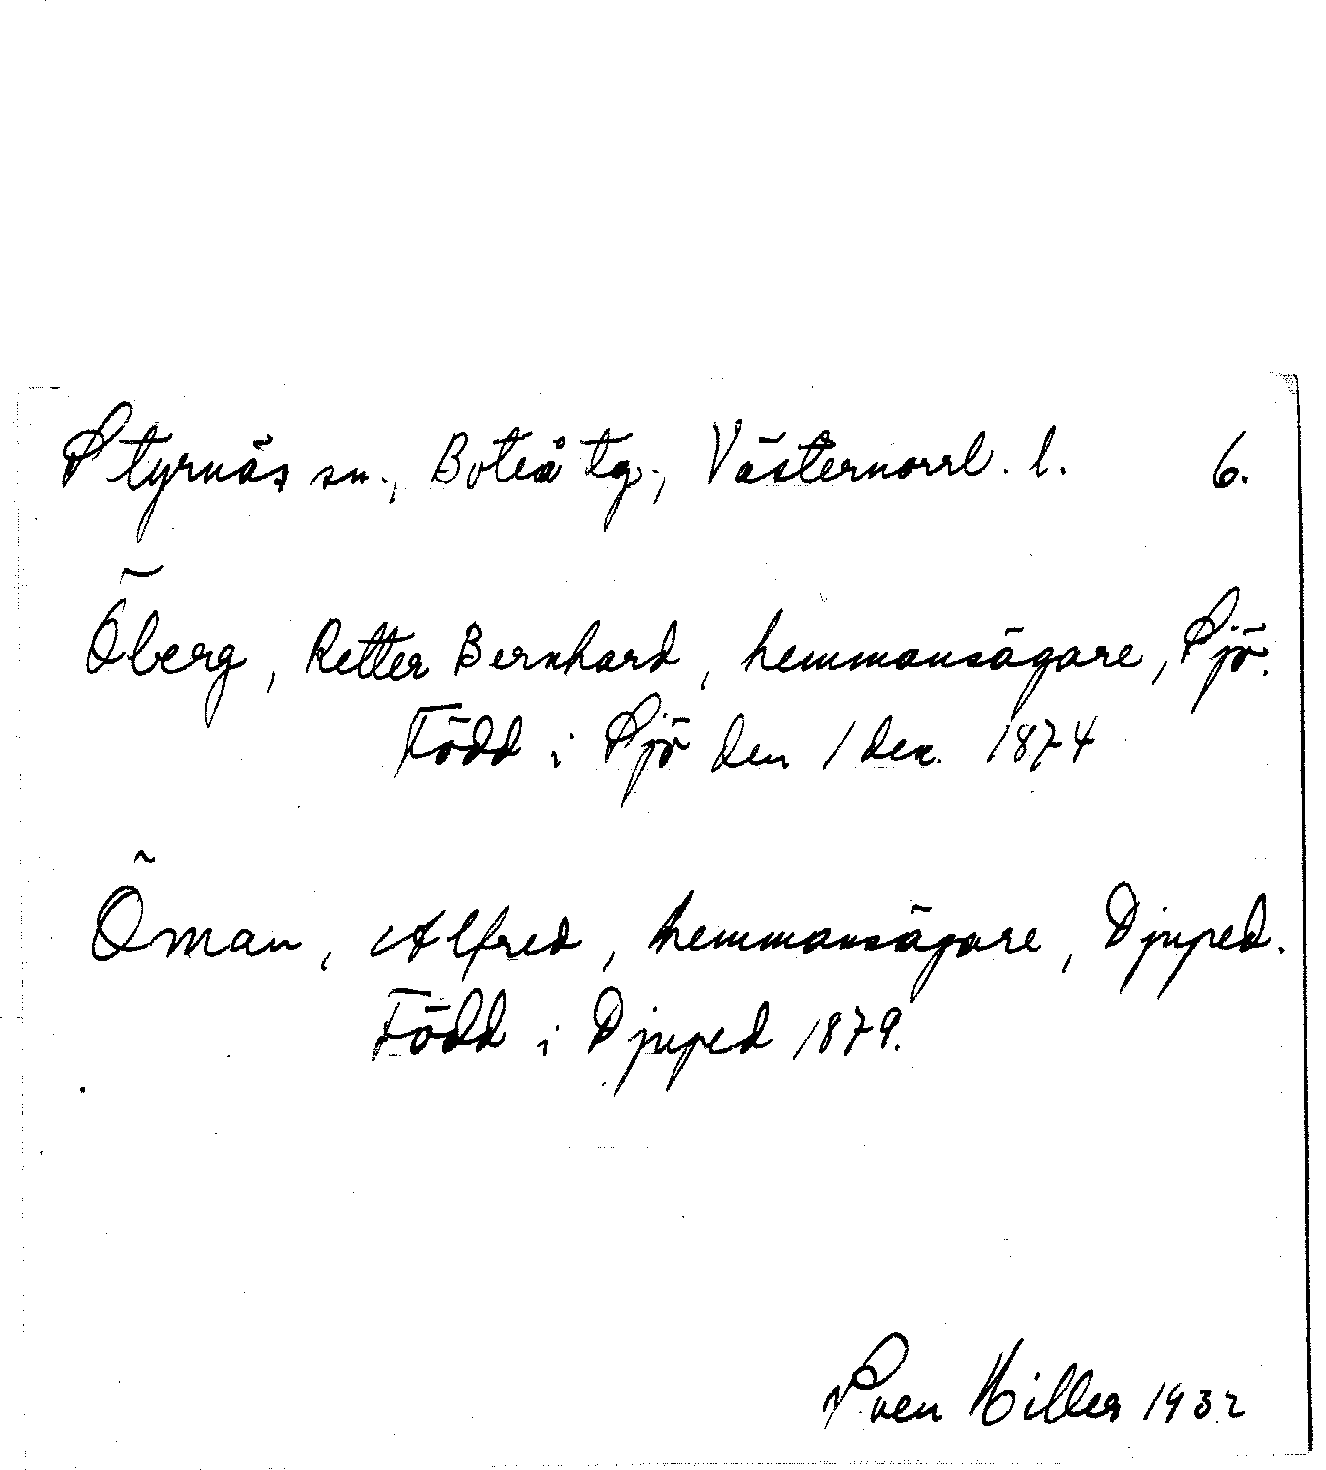 Styrnäs sn., Boteå tg., Västernorrl. l. 6.
Öberg, Retter Bernhard, hemmansägare, Sjö.
Född i Sjö den 1 dec. 1874
Öman, Alfred, hemmansägare, Djuped.
Född i Djuped 1879.
Sven Hiller 1932